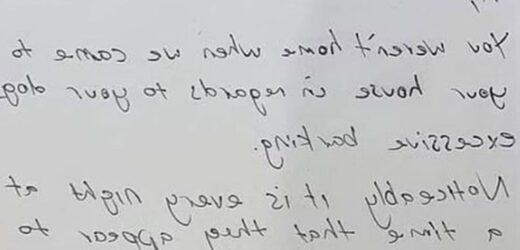 You weren't home when we came to
your house in regards to your dog
excessive barking.
Noticeably it is every night at
a time that they appear to